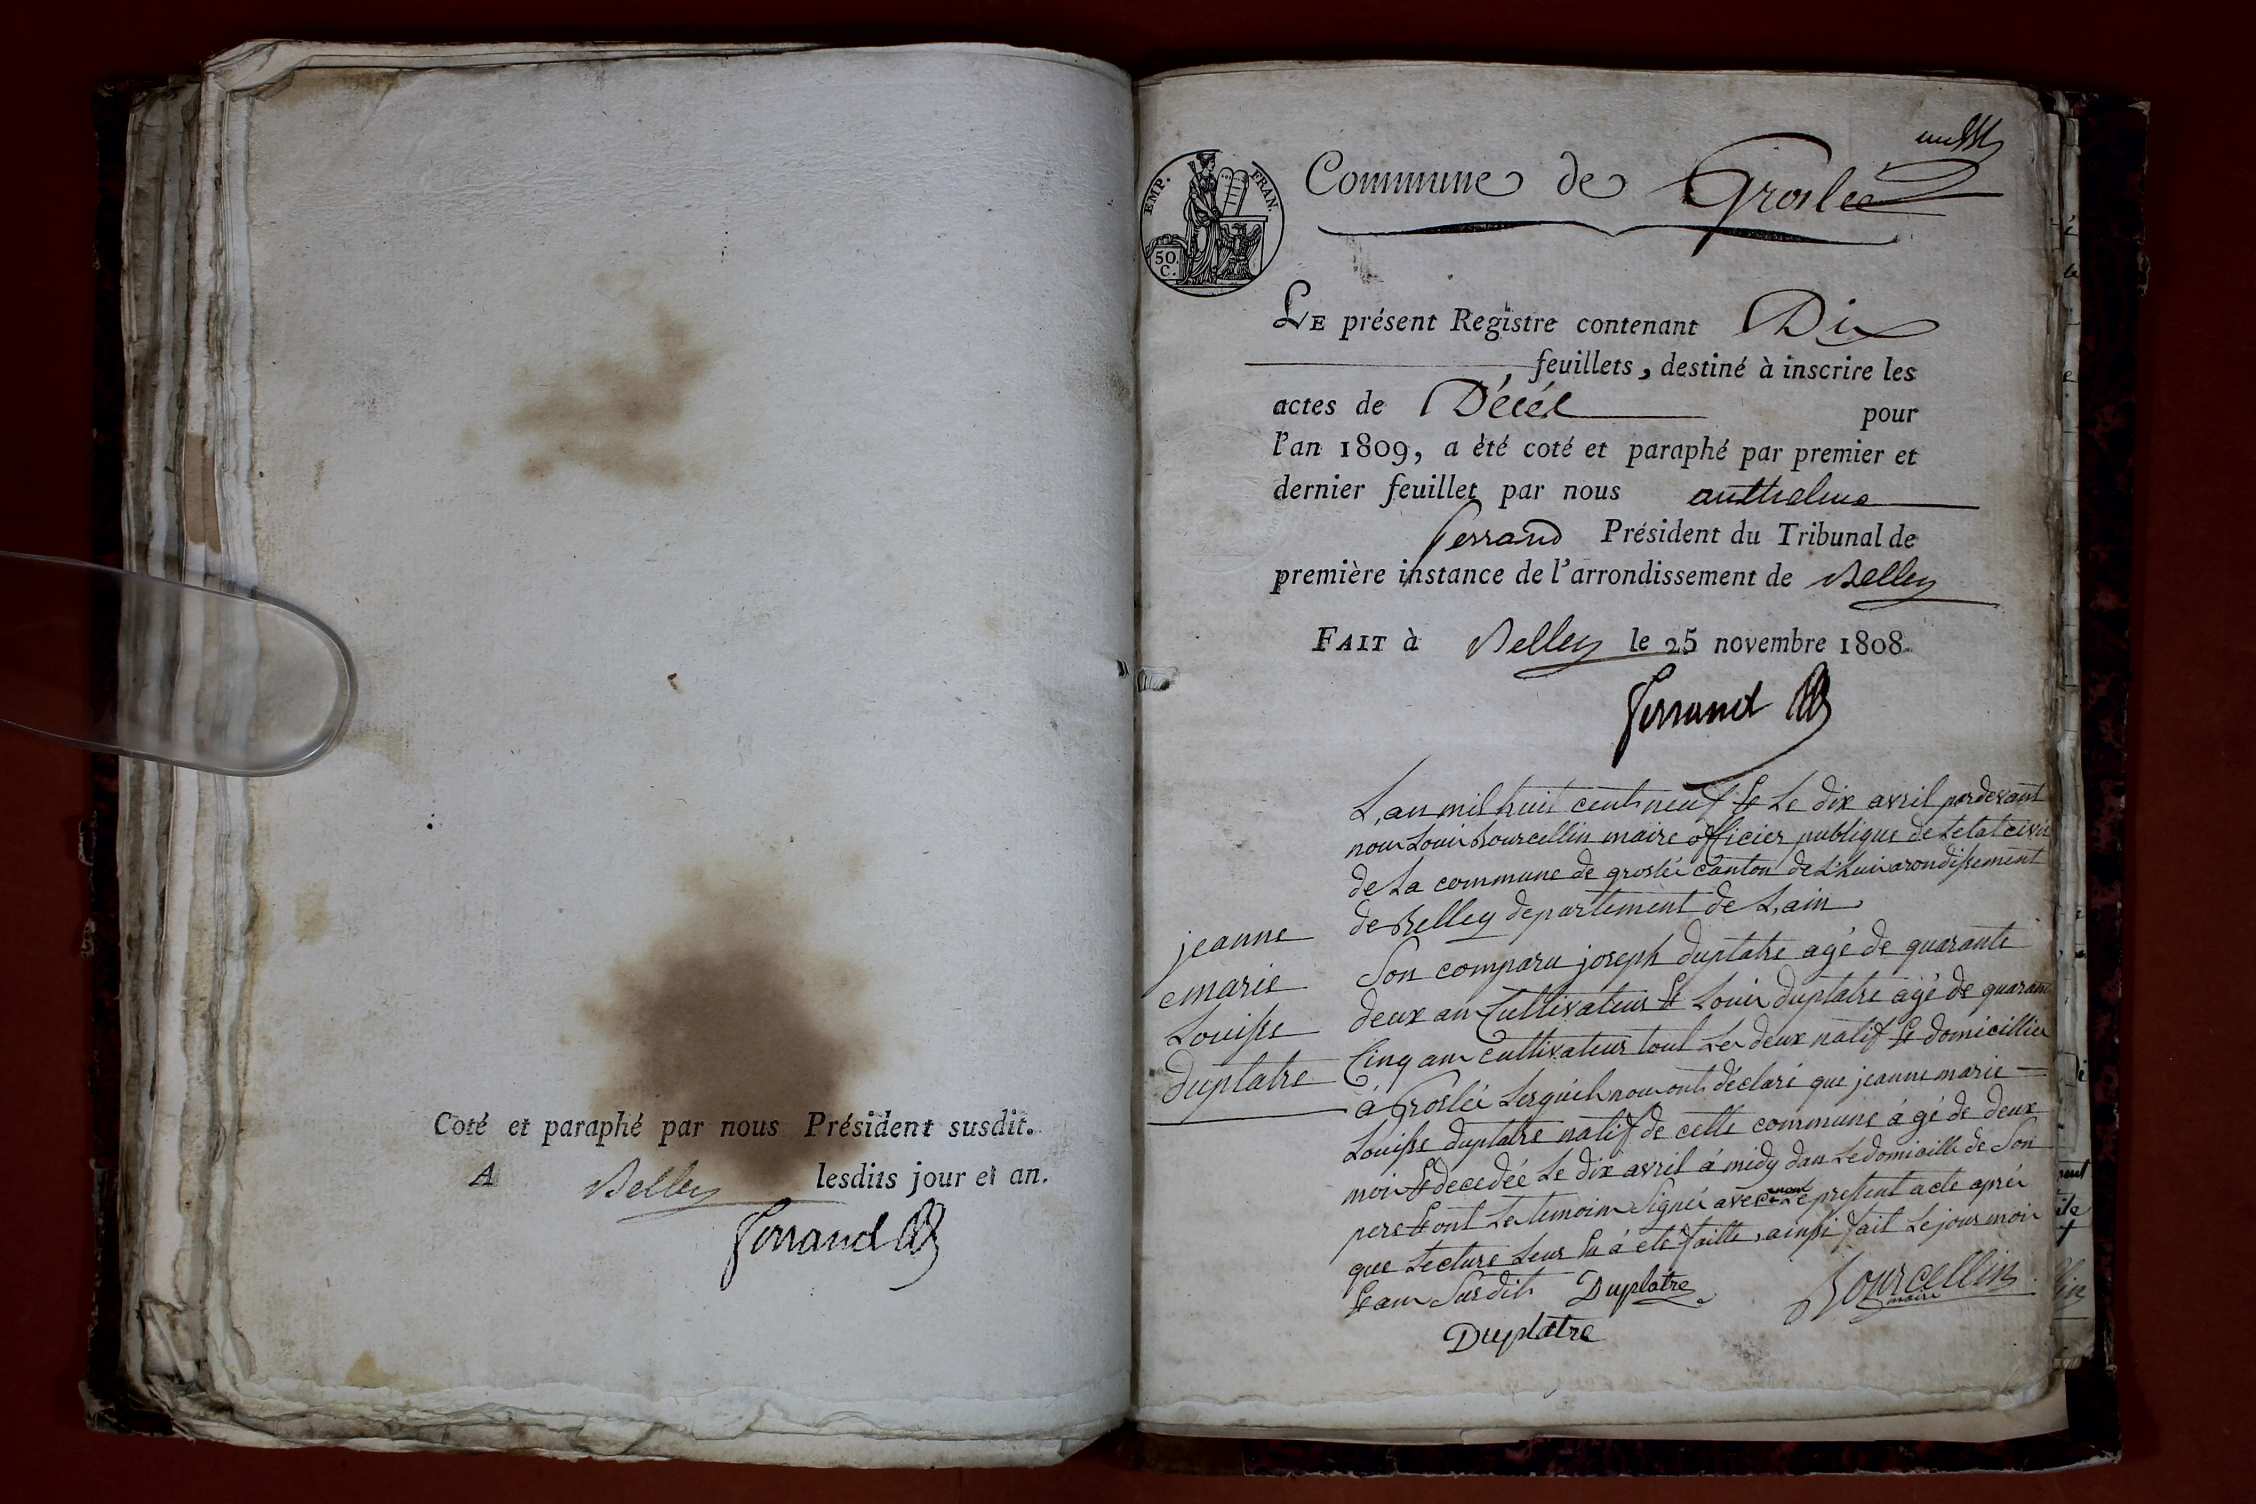 Coté et paraphé par nous Président susdit.
A Belley lesdits jour et an.
Ferrand
EMP. FRAN.
50.
C.
Commune de Groslee
LE présent Registre contenant Dix
feuillets, destiné à inscrire les
actes de Décés pour
l'an 1809, a été coté et paraphé par premier et
dernier feuillet par nous anthelme
Ferrand Président du Tribunal de
première instance de l'arrondissement de Belley
FAIT à Belley le 25 novembre 1808.
Ferrand
jeanne
marie
Louisse
duplatre
L'an mil huit cent neuf & Le dix avril pardevant
nous Louis Bourcellin maire officier publique de Letat civil
de La commune de groslée canton de Lhuis arondissement
de Belley departement de L'ain
Son comparu joseph duplatre agé de quarante
deux an Cultivateur & Louis duplatre agé de quarante
Cinq ans cultivateur tout Les deux natif & domicillies
á Groslée Lesquels nous ont déclaré que jeanne marie
Louisse duplatre natif de cette commune ágé de deux
mois & decedée Le dix avril á midy dans Le domicille de Son
pere & ont Les temoins Signés avec nous Le present acte aprés
que Lecture Leur En á eté faitte, ainsi fait Le jour mois
& an Susdits Duplatre Bourcellin
maire
Duplatre